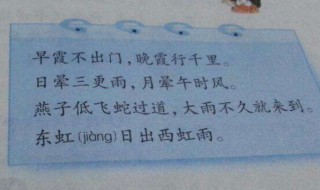 早霞不出门，晚霞行千里。
日晕三更雨，月晕午时风。
燕子低飞蛇过道，大雨不久就来到。
东虹(jiàng)日出西虹雨。